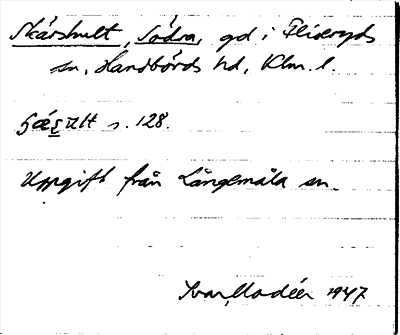 Skårshult, Södra, gd i Fliseryds
sn, Handbörds hd, Klm. l.
s. 128.
Uppgift från Långemåla sn.
Ivar Modéer 1947